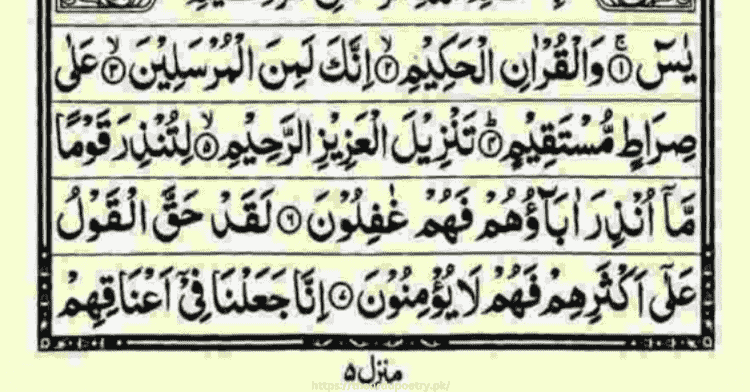 يٰسٓ ۚ﴿۱﴾ وَالْقُرْاٰنِ الْحَكِيْمِ ۙ﴿۲﴾ اِنَّكَ لَمِنَ الْمُرْسَلِيْنَ ۙ﴿۳﴾ عَلٰى
صِرَاطٍ مُّسْتَقِيْمٍ ؕ﴿۴﴾ تَنْزِيْلَ الْعَزِيْزِ الرَّحِيْمِ ۙ﴿۵﴾ لِتُنْذِرَ قَوْمًا
مَّاۤ اُنْذِرَ اٰبَآؤُهُمْ فَهُمْ غٰفِلُوْنَ ﴿۶﴾ لَقَدْ حَقَّ الْقَوْلُ
عَلٰٓى اَكْثَرِهِمْ فَهُمْ لَا يُؤْمِنُوْنَ ﴿۷﴾ اِنَّا جَعَلْنَا فِيْٓ اَعْنَاقِهِمْ
منزل ۵